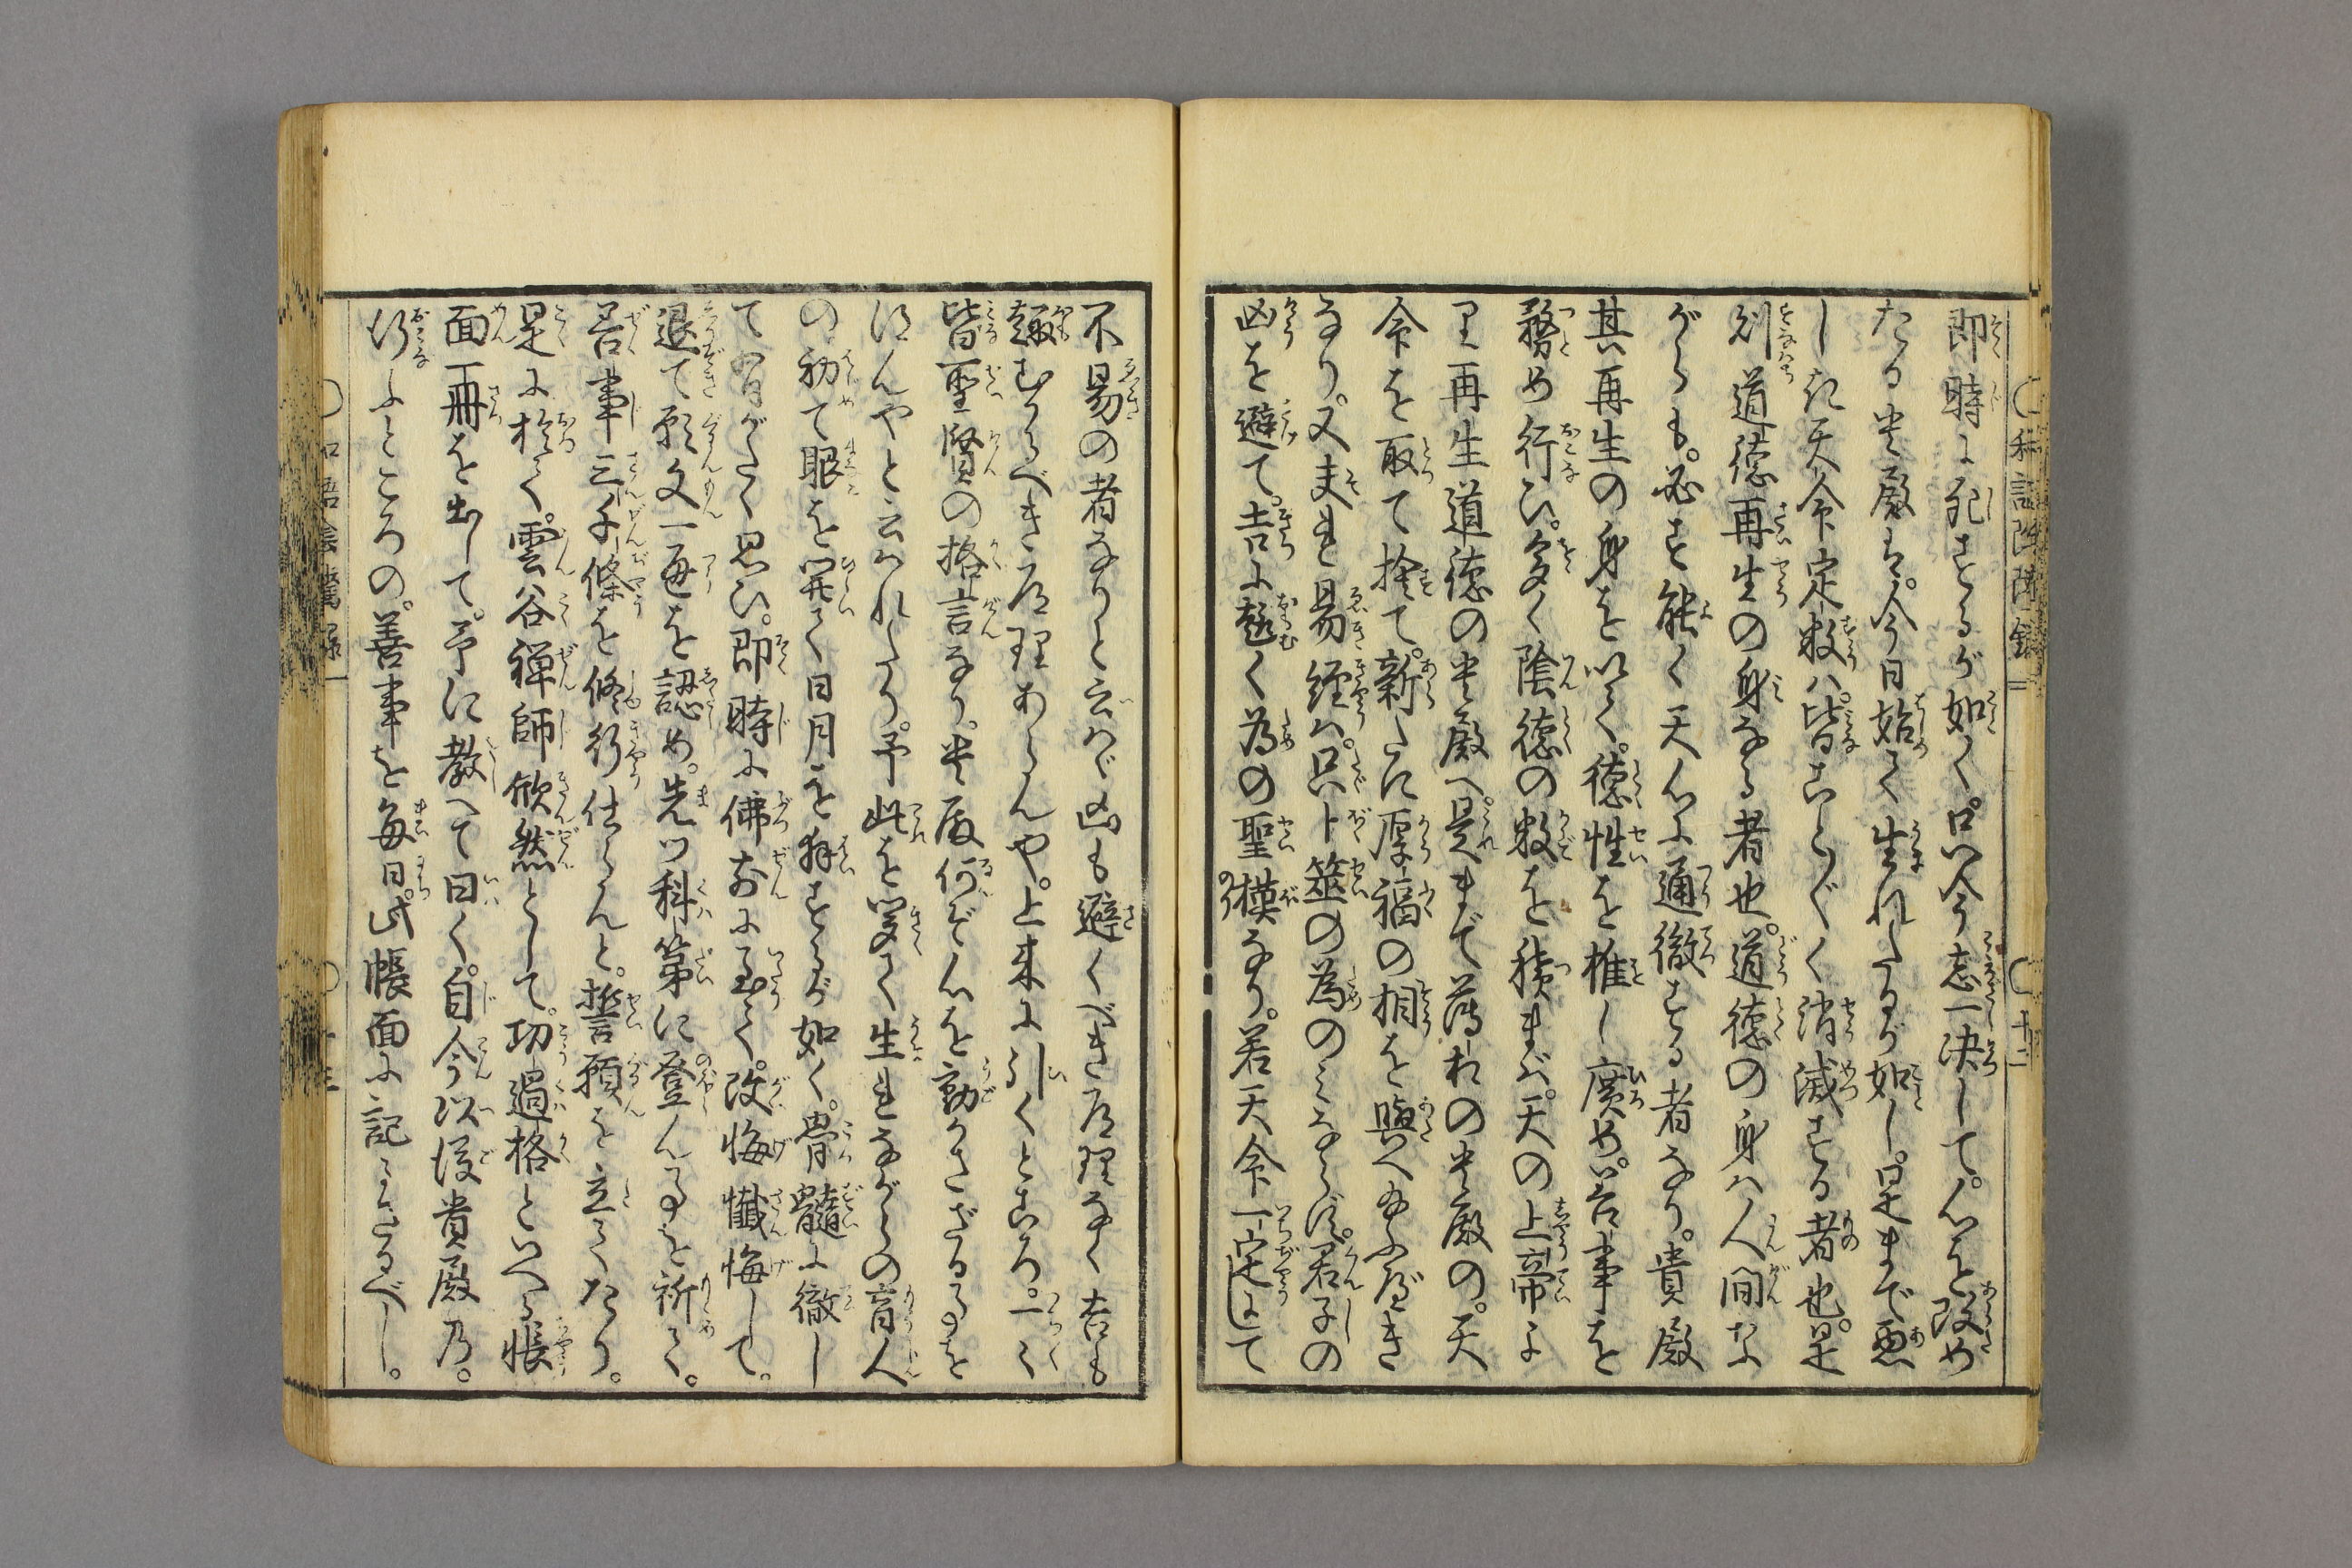 即時に死するが如く。只今志一決して。心を改め
たる貴殿は。今日始て生れたるが如し。是まで悪
しき天命定数ハ。皆ことごとく消滅する者也。是
則道徳再生の身なる者也。道徳の身ハ人間な
がらも。必ず能く天心に通徹する者なり。貴殿
其再生の身を以て。徳性を推し廣め。善事を
務め行ひ。多く陰徳の数を積まば。天の上帝よ
り再生道徳の貴殿へ。是まで薄わの貴殿の。天
命を取て捨て。新たに厚福の相を與へ給ふべき
なり。又夫れ易経ハ。只卜筮の為のみならず。君子の
凶を避て。吉に趨く為の聖模なり。若天命一定して
不易の者なりと云ハゞ凶も避くべき道理なく吉も
趣むくべき道理あらんや。上来に引くところ。一々
皆聖賢の格言なり。貴殿何ぞ心を動かさざる事を
得んやと云ハれたり。予此を聞て生れながらの盲人
の初て眼を開て日月を拜するが如く。骨髄に徹し
て有がたく思ひ。即時に佛前に至て。改悔懺悔して。
退て願文一通を認め。先ツ科第に登ん事を祈て。
善事三千條を修行仕らんと。誓願を立てたり。
是に於て。雲谷禅師欣然として。功過格といへる帳
面一冊を出して。予に教へて曰く。自今以後貴殿乃。
行ふところの。善事を毎日。此帳面に記しるべし。